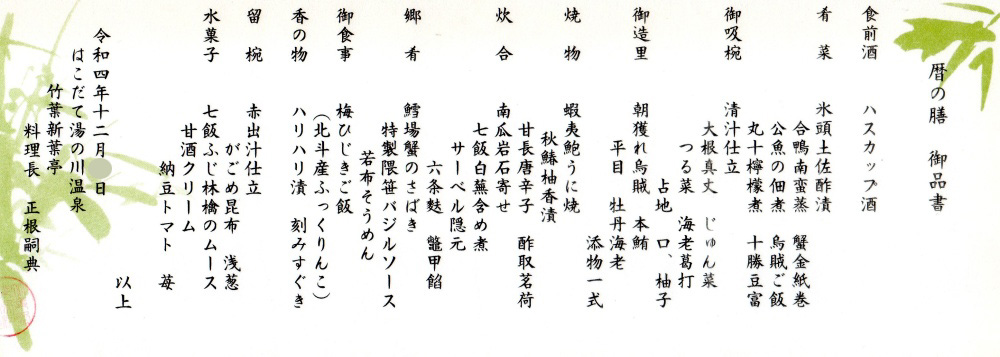 暦の膳　御品書
食前酒　ハスカップ酒
肴菜　氷頭土佐酢漬
合鴨南蛮蒸　蟹金紙巻
公魚の佃煮　烏賊ご飯
丸十檸檬煮　十勝豆富
御吸椀　清汁仕立
大根真丈　じゅん菜
つる菜　海老葛打
占地　口、柚子
御造里　朝獲れ烏賊　本鮪
平目　牡丹海老
添物一式
焼物　蝦夷鮑うに焼
秋鰆柚香漬
甘長唐辛子　酢取茗荷
炊合　南瓜岩石寄せ
七飯白蕪含め煮
サーベル隠元
六条麩　鼈甲餡
郷肴　鱈場蟹のさばき
特製隈笹バジルソース
若布そうめん
御食事　梅ひじきご飯
（北斗産ふっくりんこ）
香の物　ハリハリ漬　刻みすぐき
留椀　赤出汁仕立
がごめ昆布　浅葱
水菓子　七飯ふじ林檎のムース
甘酒クリーム
納豆トマト　苺
以上
令和四年十二月　日
はこだて湯の川温泉
竹葉新葉亭
料理長　正根嗣典